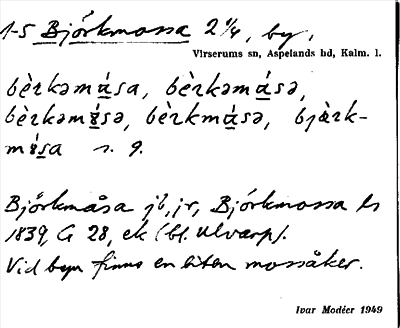 1-5 Björkmossa 2 1/4, by,
Virserums sn, Aspelands hd, Kalm. l.
bèrkəmá̱sa, bèrkəmá̱sə,
bèrkəmá̱sə, bèrkmá̱sə, bjàrk-
má̱sa n. g.
Björkmåsa jb, jr, Björkmossa ls
1839, G 28, ek (bl. Ulvarp).
Vid byn finns en liten mossåker.
Ivar Modéer 1949